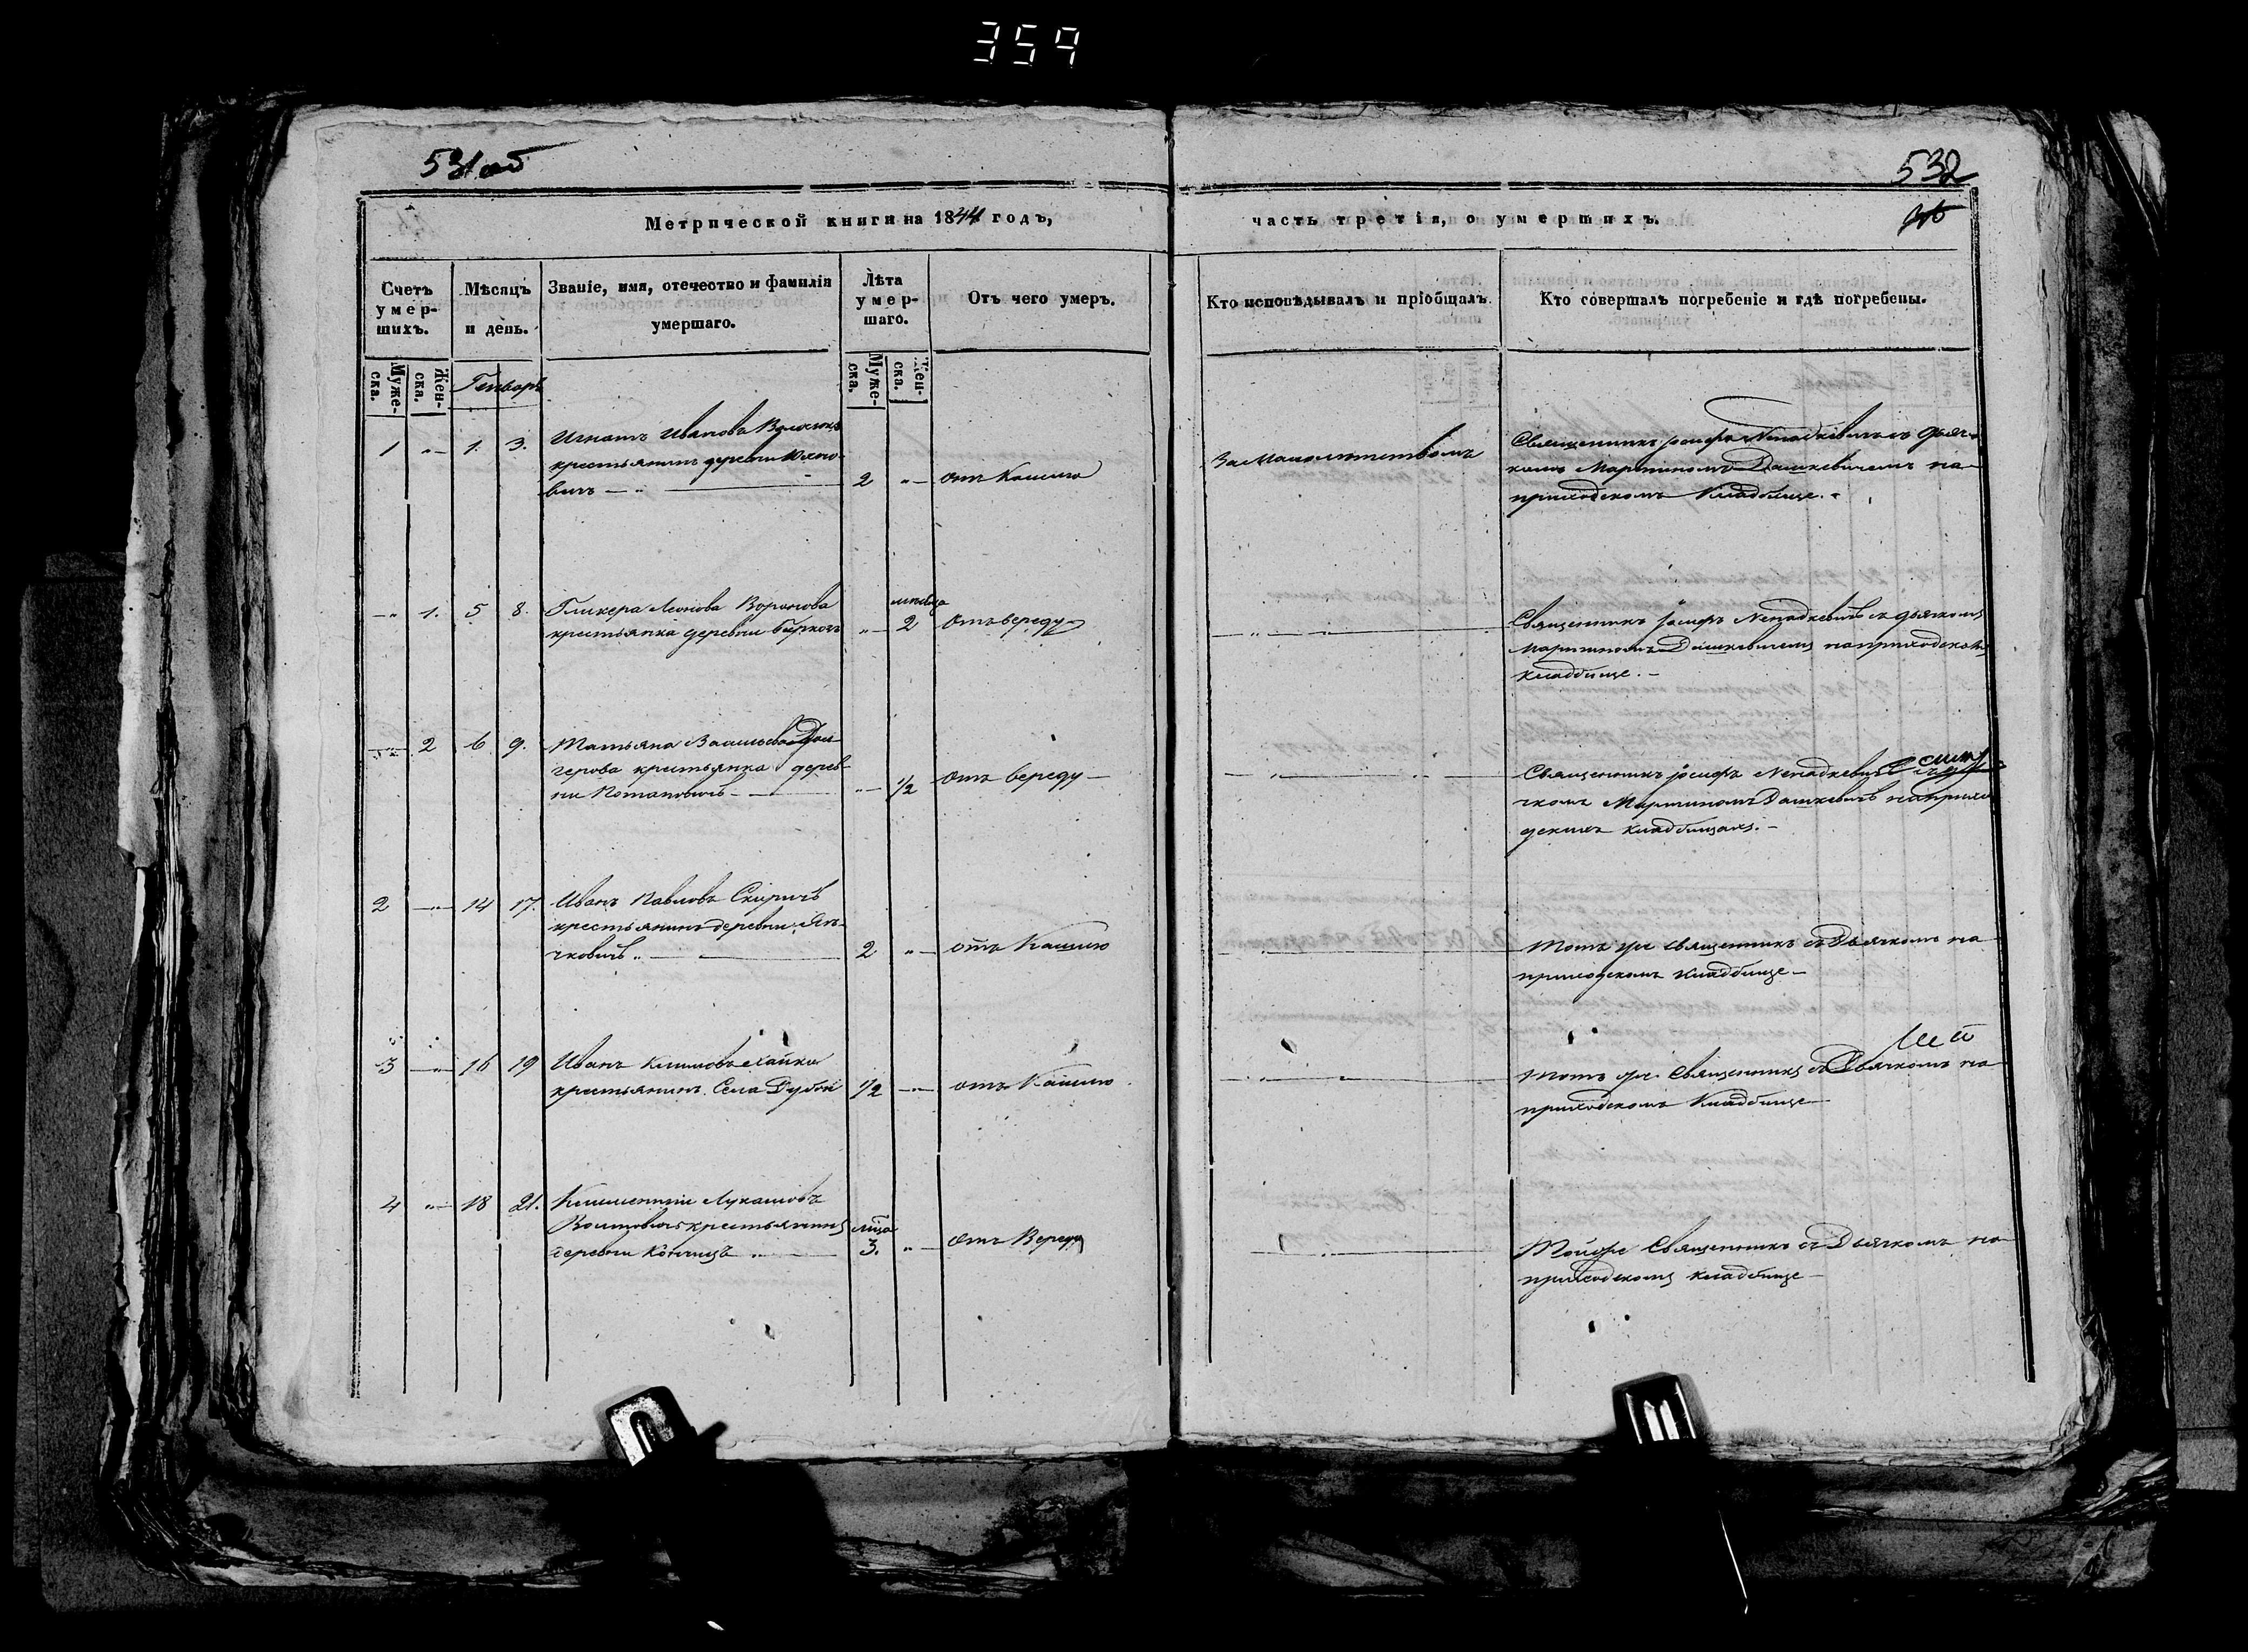 359
531 об
532
Метрической книги на 1844 годъ,
часть третія, о умершихъ.
Счетъ умер-шихъ.
Мѣсяцъ и день.
Званіе, имя, отечество и фамилія умершаго.
Лѣта умер-шаго.
Отъ чего умеръ.
Кто исповѣдывалъ и пріобщалъ.
Кто совершалъ погребеніе и гдѣ погребены.
Муже-ска.
Жен-ска.
Генварь
Муже-ска.
Жен-ска.
1 „ 1. 3.
Игнатъ Ивановъ
крестьянинъ деревни Юхно-
вичъ
2 „
отъ Кашлю
За малолѣтствомъ
Священникъ Іосифъ Ненадкевичъ съ дьяч-
комъ Мартиномъ Дашкевичемъ на
приходскомъ Кладбище.
„ 1. 5 8.
Гликера Леонова Воронова
крестьянка деревни
мѣсяца
„ 2
Отъ вереду
„ „
Священникъ Іосифъ Ненадкевичъ съ дьячкомъ
Мартиномъ Дашкевичемъ на приходскомъ
кладбище.
„ 2 6 9.
Татьяна
герова крестьянка дерев-
ни Потаповичъ
„ 1/2
отъ вереду
„ „
Священникъ Іосифъ Ненадкевичъ
чкомъ Мартиномъ Дашкевичъ на прихо
дскихъ кладбищахъ.
2 „ 14 17.
Иванъ Павловъ Скиричъ
крестьянинъ деревни
чковичъ „
2 „
отъ Кашлю
„
Тотъ же священникъ съ Дьячкомъ на
приходскомъ кладбище
3 „ 16 19
Иванъ Климовъ
крестьянинъ Села
1/2 „
отъ Кашлю
„ „
Тотъ же Священникъ съ Дьячкомъ на
приходскомъ Кладбище
4 „ 18 21.
Климентій Лукашовъ
Волтовичъ крестьянинъ
деревни „
мца
3. „
отъ Вереду
„
Тойже Священникъ съ Дьячкомъ на
приходскомъ кладбище